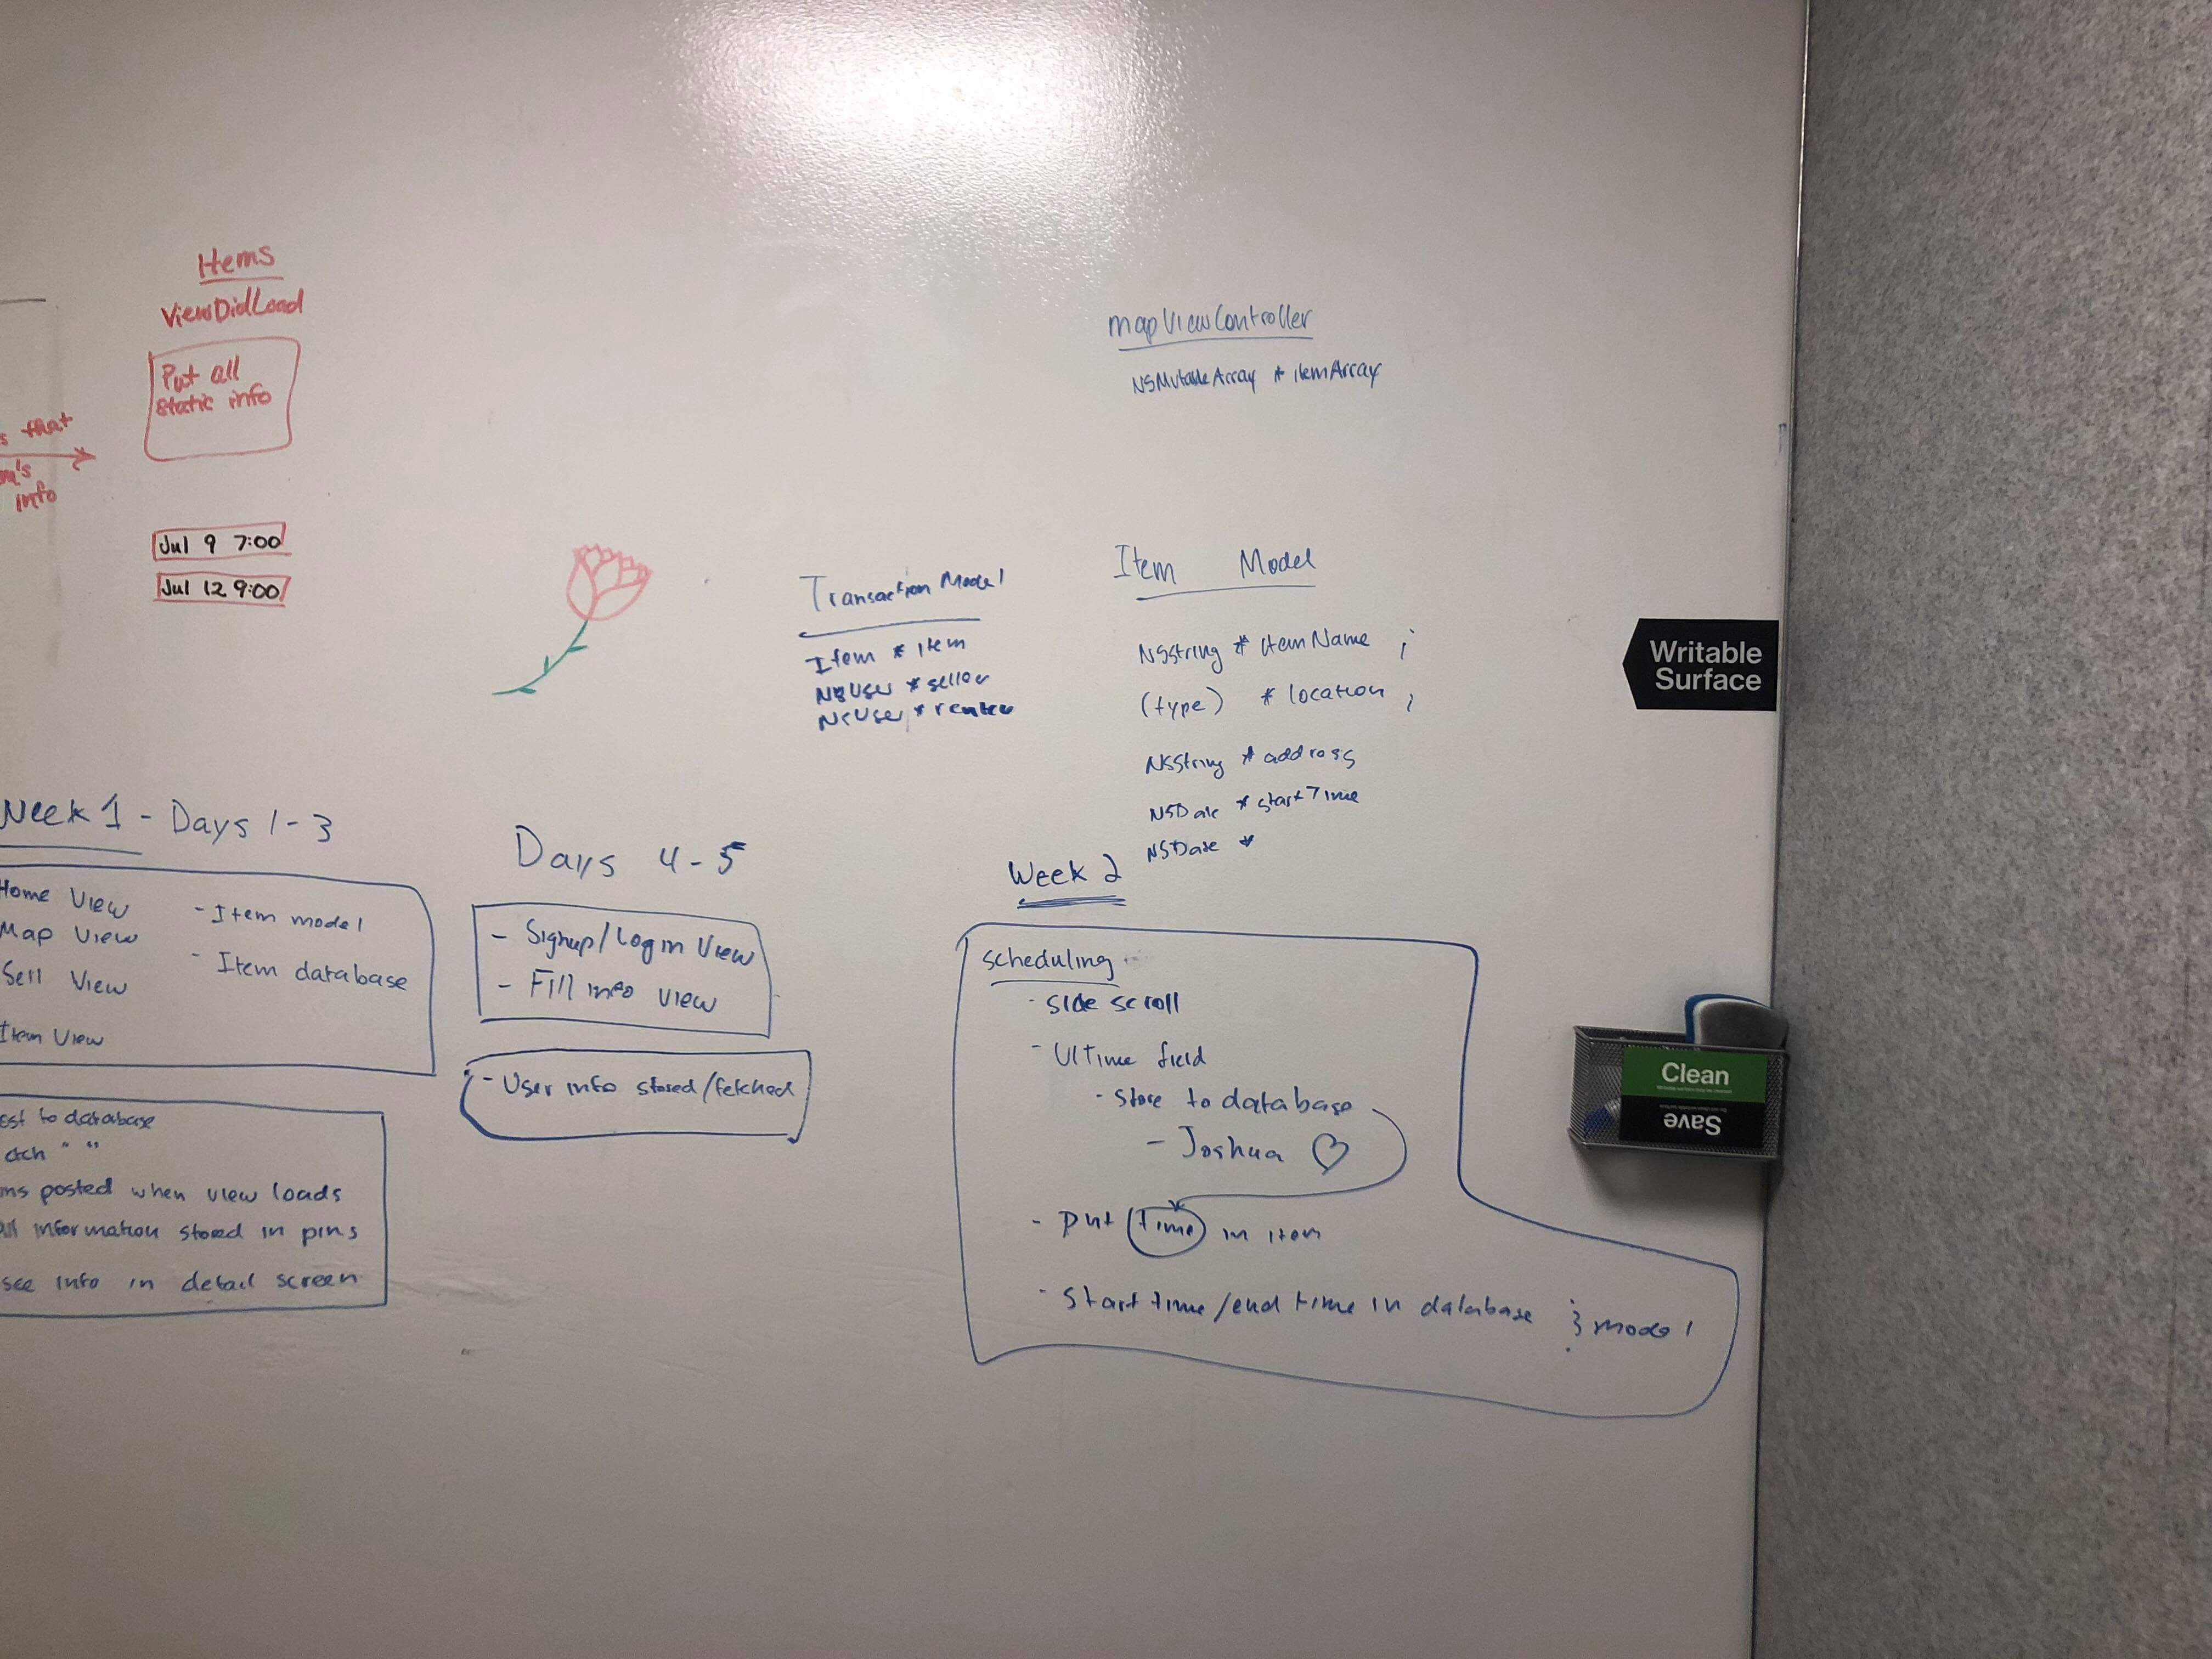 Items
ViewDidLoad
Put all
static info
that
info
Jul 9 7:00
Jul 12 9:00
mapViewController
NSMutableArray * itemArray
Transaction Model
Item * item
NSUser * seller
* renter
Item Model
NSString * itemName ;
(type) * location ;
NSString * address
NSDate * startTime
NSDate *
Writable
Surface
Week 1 - Days 1-3
Home View
Map View
Sell View
Item View
- Item model
- Item database
to database
" "
posted when view loads
information stored in pins
see info in detail screen
Days 4-5
- Signup/Login View
- Fill info view
- User info stored/fetched
Week 2
scheduling
- side scroll
- UI Time field
- store to database
- Joshua ♡
- put time in item
- start time/end time in database } model
Clean
Save